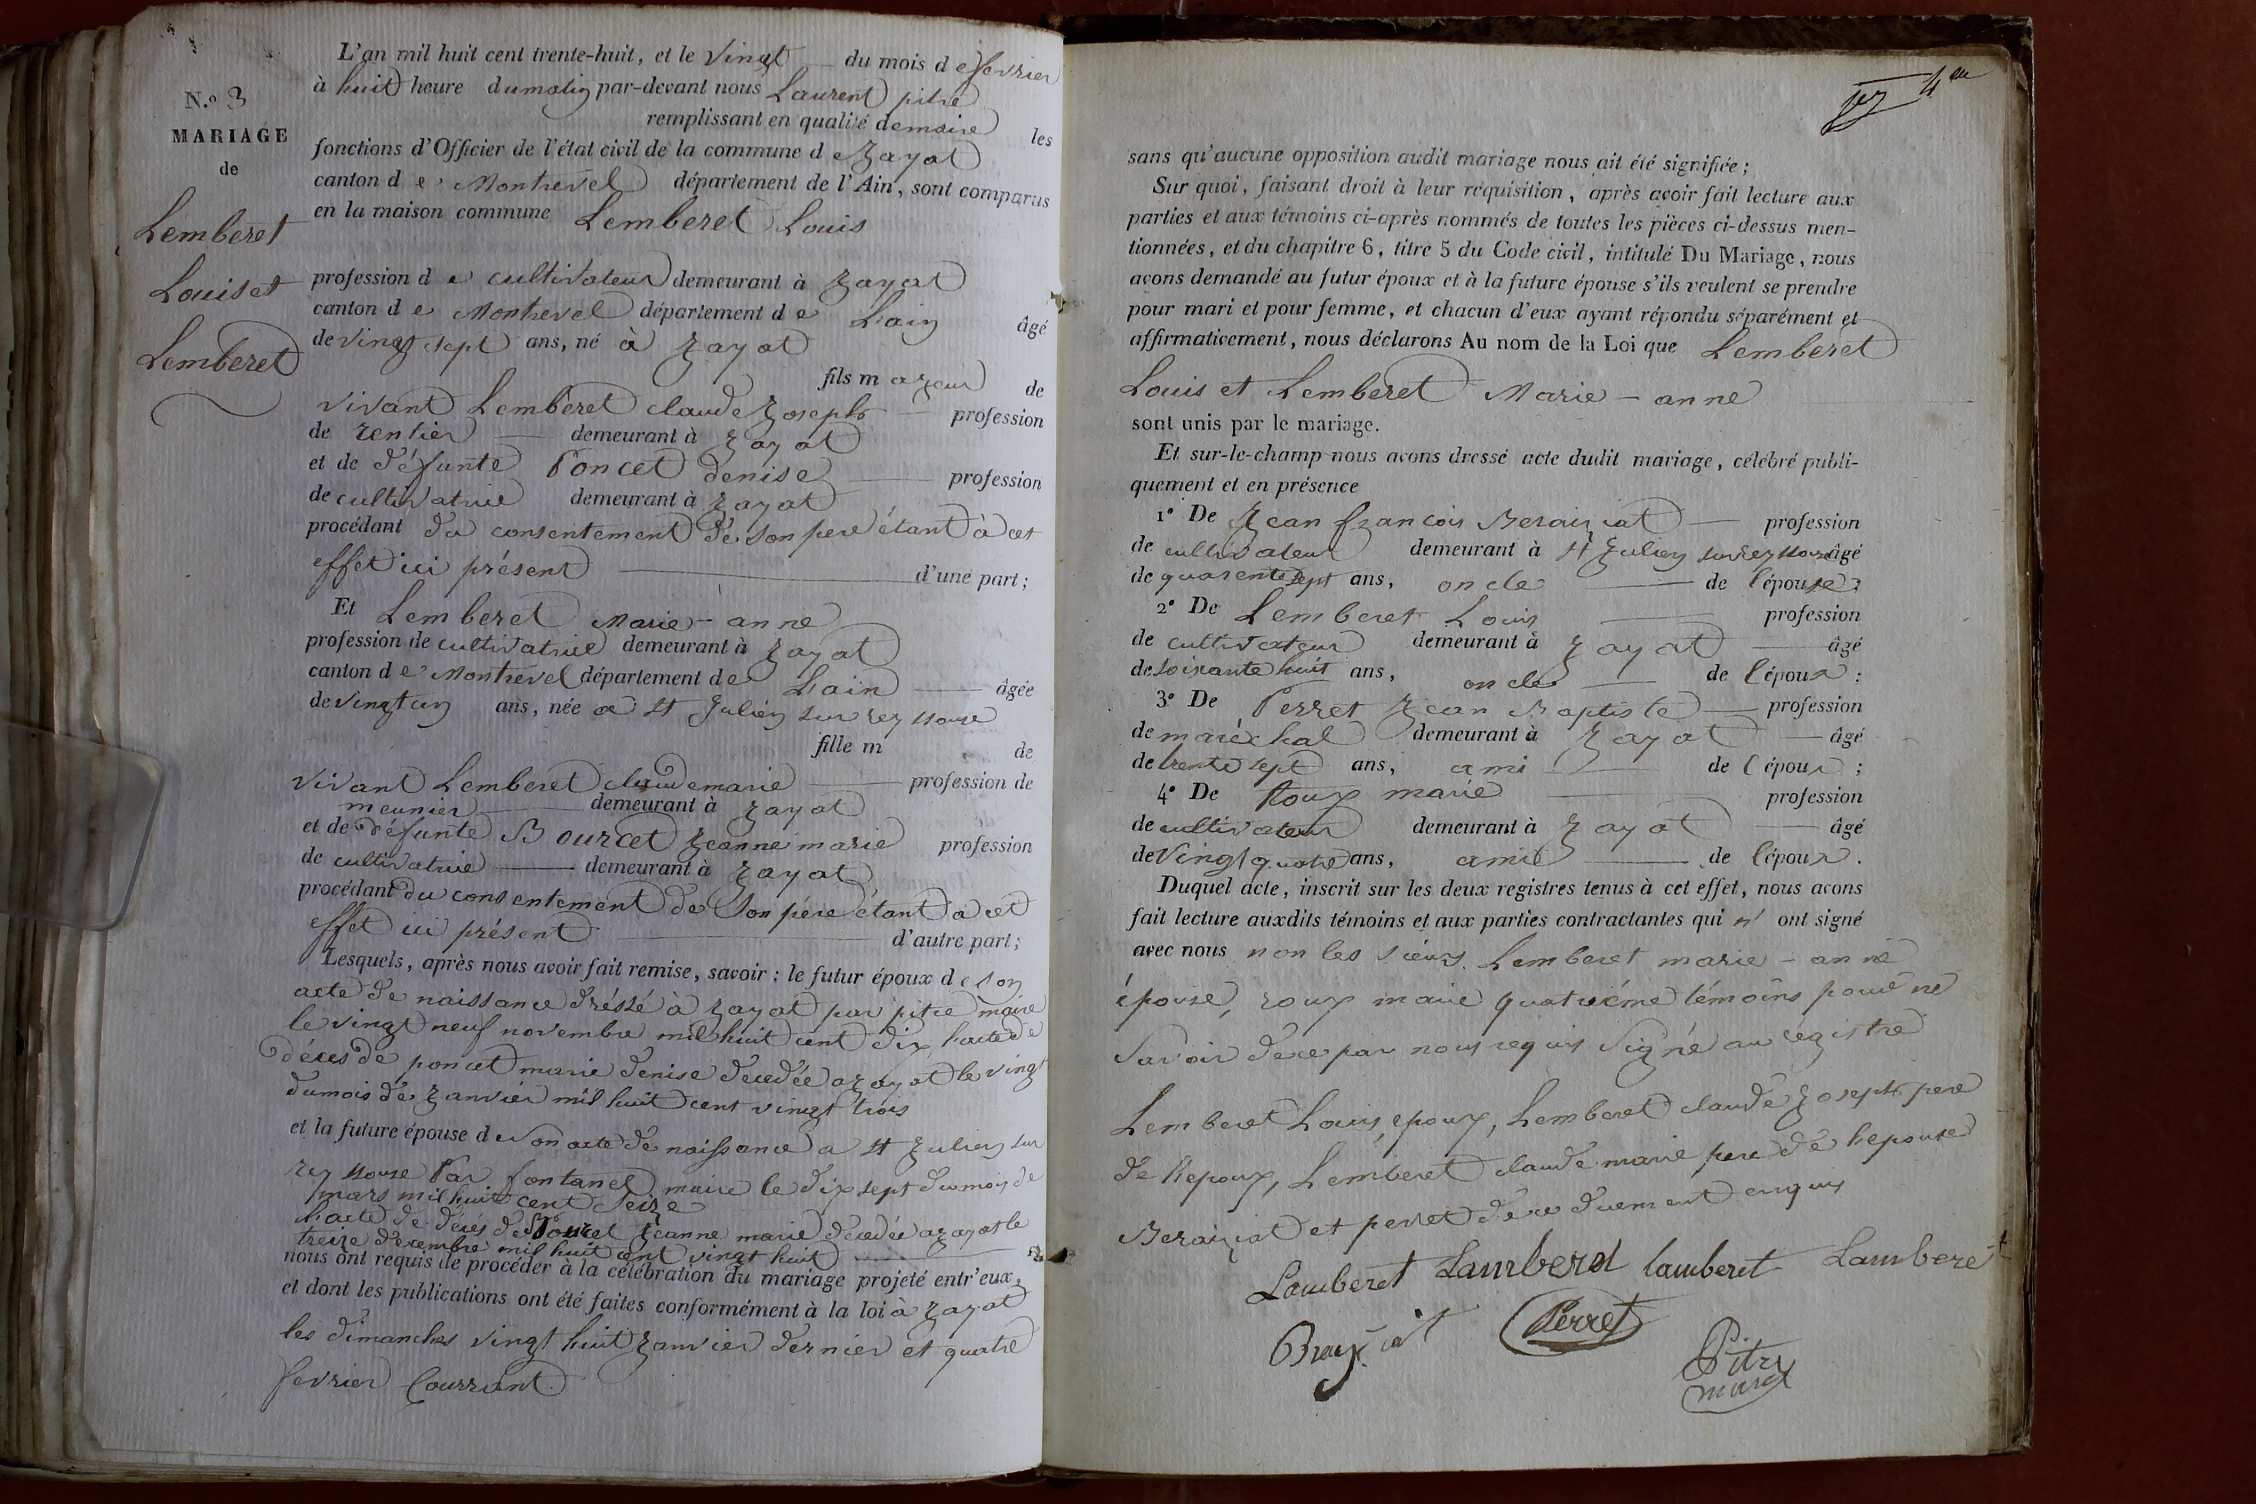 N.o 3
MARIAGE
de
Lemberet
Louis et
Lemberet
L'an mil huit cent trente-huit, et le vingt du mois de fevrier
à huit heure du matin par-devant nous Laurent pitre
remplissant en qualité de maire les
fonctions d'Officier de l'état civil de la commune de Zayat
canton de Montrevel département de l'Ain, sont comparus
en la maison commune Lemberet Louis
profession de cultivateur demeurant à Zayat
canton de Montrevel département de Lain âgé
de vingt sept ans, né à Zayat
fils mazeur de
vivant Lemberet claude Zoseph profession
de rentier demeurant à Zayat
et de défunte Poncet denise profession
de cultivatrice demeurant à Zayat
procédant du consentement de son pere étant à cet
effet ici présent d'une part;
Et Lemberet Marie-anne
profession de cultivatrice demeurant à Zayat
canton de Montrevel département de Lain âgée
de vingt un ans, née a St Julien sur reyssouse
fille m de
vivant Lemberet claude marie profession de
meunier demeurant à Zayat
et de défunte Bourcet Zeanne marie profession
de cultivatrice demeurant à Zayat
procédant du consentement de son père étant à cet
effet ici présent d'autre part;
Lesquels, après nous avoir fait remise, savoir : le futur époux de son
acte de naissance dréssé à Zayat par pitre maire
le vingt neuf novembre mil huit cent dix, lacte de
déces de poncet marie denise decedée a Zayat le vingt
du mois de Zanvier mil huit cent vingt trois
et la future épouse de son acte de naissance a St Zulien sur
reyssouse Par fontanel maire le dix sept du mois de
mars mil huit cent seize
Lacte de décés de Bourcet Zeanne marie décedée a Zayat le
treize decembre mil huit cent vingt huit
nous ont requis de procéder à la célébration du mariage projeté entr'eux,
et dont les publications ont été faites conformément à la loi à Zayat
les dimanches vingt huit Zanvier dernier et quatre
fevrier Courrant.
4
sans qu'aucune opposition audit mariage nous ait été signifiée ;
Sur quoi, faisant droit à leur réquisition, après avoir fait lecture aux
parties et aux témoins ci-après nommés de toutes les pièces ci-dessus men-
tionnées, et du chapitre 6, titre 5 du Code civil, intitulé Du Mariage, nous
avons demandé au futur époux et à la future épouse s'ils veulent se prendre
pour mari et pour femme, et chacun d'eux ayant répondu séparément et
affirmativement, nous déclarons Au nom de la Loi que Lemberet
Louis et Lemberet Marie-anne
sont unis par le mariage.
Et sur-le-champ nous avons dressé acte dudit mariage, célébré publi-
quement et en présence
1° De Zean françois Beraiziat profession
de cultivateur demeurant à St Zulien sur reyssouse âgé
de quarente sept ans, oncle de l'épouse ;
2° De Lemberet Louis profession
de cultivateur demeurant à Zayat âgé
de soixante huit ans, oncle de l'époux ;
3° De Perret Zean Baptiste profession
de maréchal demeurant à Zayat âgé
de trente sept ans, ami de l'époux ;
4° De Roux marie profession
de cultivateur demeurant à Zayat âgé
de vingt quatre ans, amie de l'époux.
Duquel acte, inscrit sur les deux registres tenus à cet effet, nous avons
fait lecture auxdits témoins et aux parties contractantes qui n' ont signé
avec nous non les sieurs. Lemberet marie-anne
épouse, roux marie quatriéme témoins pour ne
savoir de ce par nous requis Signé au registre
Lemberet Louis, epoux, Lemberet claude Zoseph pere
de lepoux, Lemberet claude marie pere de lepouse
Beraiziat et perret de ce duement enquis
Lamberet Lamberet Lamberet Lamberet
Perret
Pitre
maire